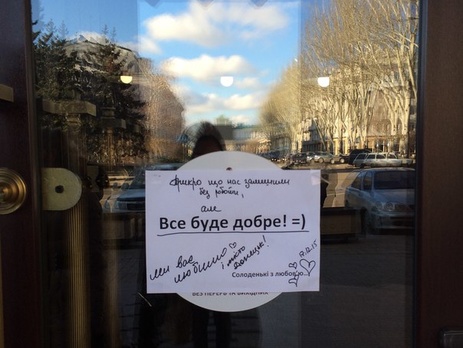 Прикро що нас залишили
без роботи,
але
Все буде добре! =)
ми вас
любимо
і місто
Донецьк!
9.12.15
Солоденькі з любов'ю...
БЕЗ ПЕРЕРВ ТА ВИХІДНИХ